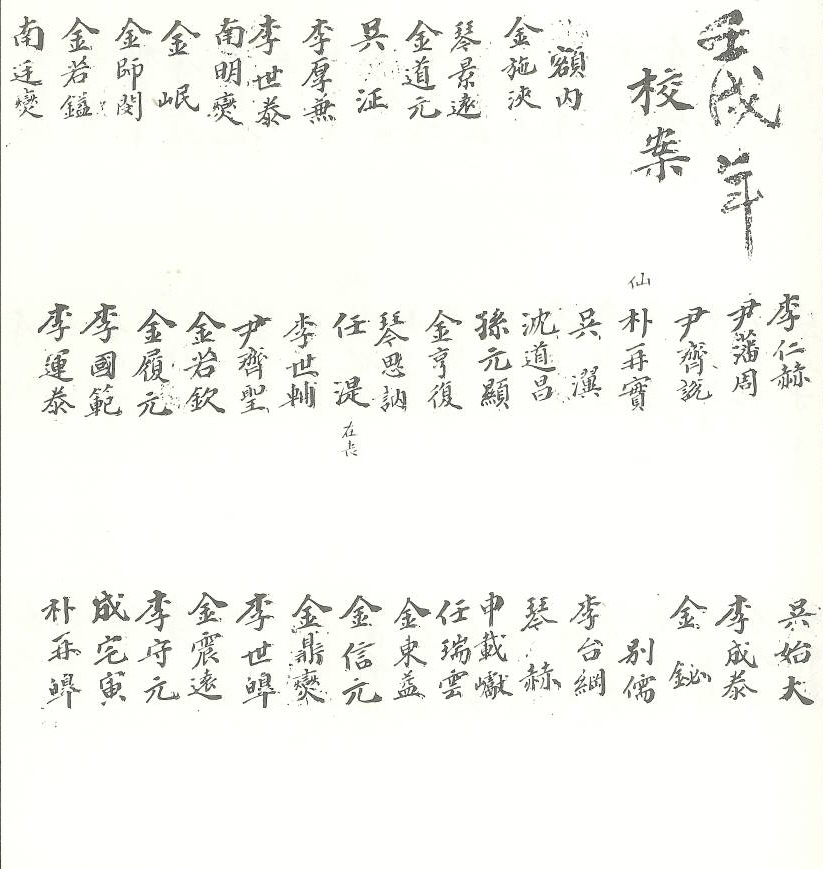 壬戌年
校案
額內
金施浹
琴景遠
金道元
吳泟
李厚兼
李世泰
南明爕
金岷
金師閔
金若鎰
南廷爕
李仁赫
尹藩周
尹齊說
仙
朴再實
吳瀷
沈道昌
孫元顯
金亨復
琴思訥
任湜 在喪
李世輔
尹齊聖
金若欽
金履元
李國範
李運泰
吳始大
李成泰
金鉍
別儒
李台綱
琴赫
申載巘
任瑞雲
金東益
金信元
金鼎爕
李世皥
金震遠
李守元
成宅寅
朴再皥